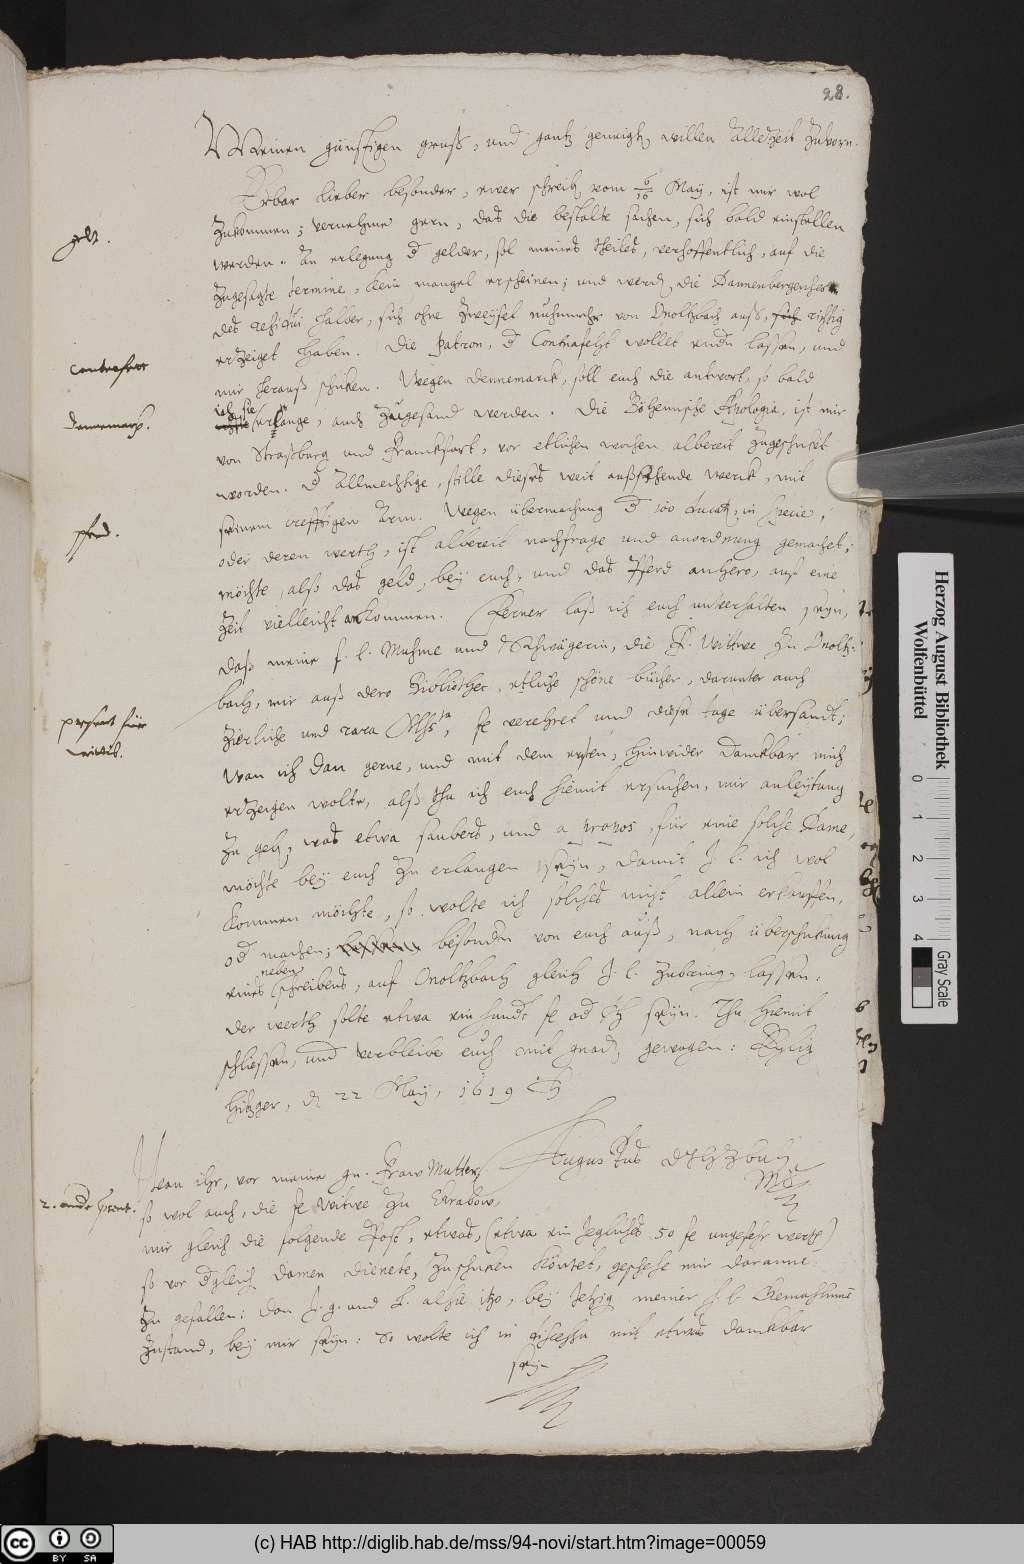 28.
Meinen günstigen gruß, und gantz geneigten willen Alletzeit zuvorn.
Erbar lieber besonder, ewer schreiben vom 6/16 May, ist mir wol
zukommen; vernehme gern, das die bestalte sachen, sich bald einstellen
werden. An erlegung der gelder, sol meines theiles, verhoffentlich, auf die
gelt.
zugesagte termine, kein mangel erscheinen; und werden, die Dannenbergischen
des residui halber, sich ohne zweyfel nuhnmehr von Onoltzbach auß, sich richtig
erzeiget haben. Die patron, der Contrafeht wollet enden lassen, und
contrafect
mir herauß schicken. Wegen Dennemarck, soll euch die antwort, so bald
ich sie erlange, auch zugesand werden. Die Böhemische Apologia, ist mir
Dennemark.
von Straßburg und Franckfort, vor etlichen wochen albereit zugeschicket
worden. Der Allmechtige, stille dieses weit außsehende werck, mit
seinem creftigen Arm. Wegen übermachung der 100 ducaten, in specie,
pferd.
oder deren werth, ist albereit nachfrage und anordnung gemachet;
möchte, alß das geld, bey euch, und das Pferd anhero, auf eine
zeit vielleicht ankommen. Ferner laß ich euch unverhalten seyn,
daß meine f. l. Muhme und Schwägerin, die F. Wittwe zu Onoltz-
bach, mir auß dero Bibliothec, etliche schöne bücher, darunter auch
zierliche und rara Mssta, verehret und diese tage übersandt;
present für
wittib.
Wan ich dan gerne, und mit dem ersten, hinwider danckbar mich
erzeigen wolte, alß thu ich euch hiemit ersuchen, mir anleytung
zu geben, was etwa saubers, und a propos, für eine solche Dame,
möchte bey euch zu erlangen seyn, damit J. l. ich wol
kommen möchte, so wolte ich solches nicht allein erkauffen,
od machen; besondern von euch auß, nach überschickung
eines neben schreibens, auf Onoltzbach gleich J. l. zubringen lassen.
der werth solte etwa ein hundert fl od Th seyn. Thu hiemit
schliessen, und verbleibe euch mit gnaden gewogen:
Hitzger, den 22 May, 1619
Augustus
Wan ihr, vor meine gn. Fraw Mutter,
so wol auch, die Witwe zu Grabow,
2. andre present.
mir gleich die folgende Post, etwas, (etwa ein Jegliches 50 fl ungefehr werth)
so vor dergleichen damen dienete, zuschicken köntet, geschehe mir daranne
zu gefallen: dan J. g. und L. alhie itzo, bey Jetzig meiner f. l. Gemahlinne
zustand, bey mir seyn: So wolte ich in mit etwas danckbar
seyn
Herzog August Bibliothek
Wolfenbüttel
0 1 2 3 4
Gray Scale
cc BY SA
(c) HAB http://diglib.hab.de/mss/94-novi/start.htm?image=00059